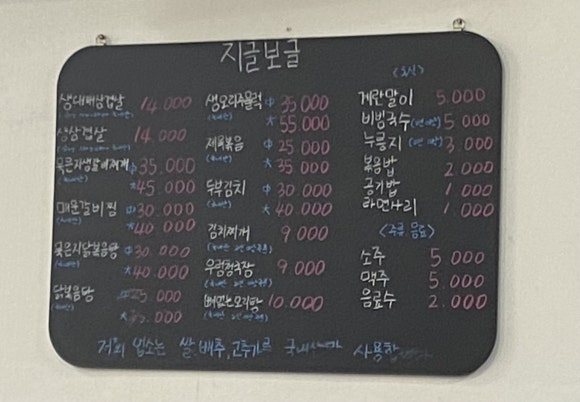 지글보글
생대패삼겹살 14.000
생삼겹살 14.000
묵은지생갈비찌개 中 35.000
大 45.000
매운갈비찜 中 30.000
大 40.000
묵은지닭볶음탕 中 30.000
大 40.000
닭볶음탕
大
생오리주물럭 中 35 000
大 55.000
제육볶음 中 25 000
大 35 000
두부김치 中 30.000
大 40.000
김치찌개 9 000
우렁청국장 9 000
뼈없는오리탕 10.000
계란말이 5.000
비빔국수 5 000
누룽지 3 000
볶음밥 2 000
공기밥 1 000
라면사리 1.000
<주류 음료>
소주 5 000
맥주 5.000
음료수 2.000
저희 업소는 쌀, 배추, 고추가루 사용합니다